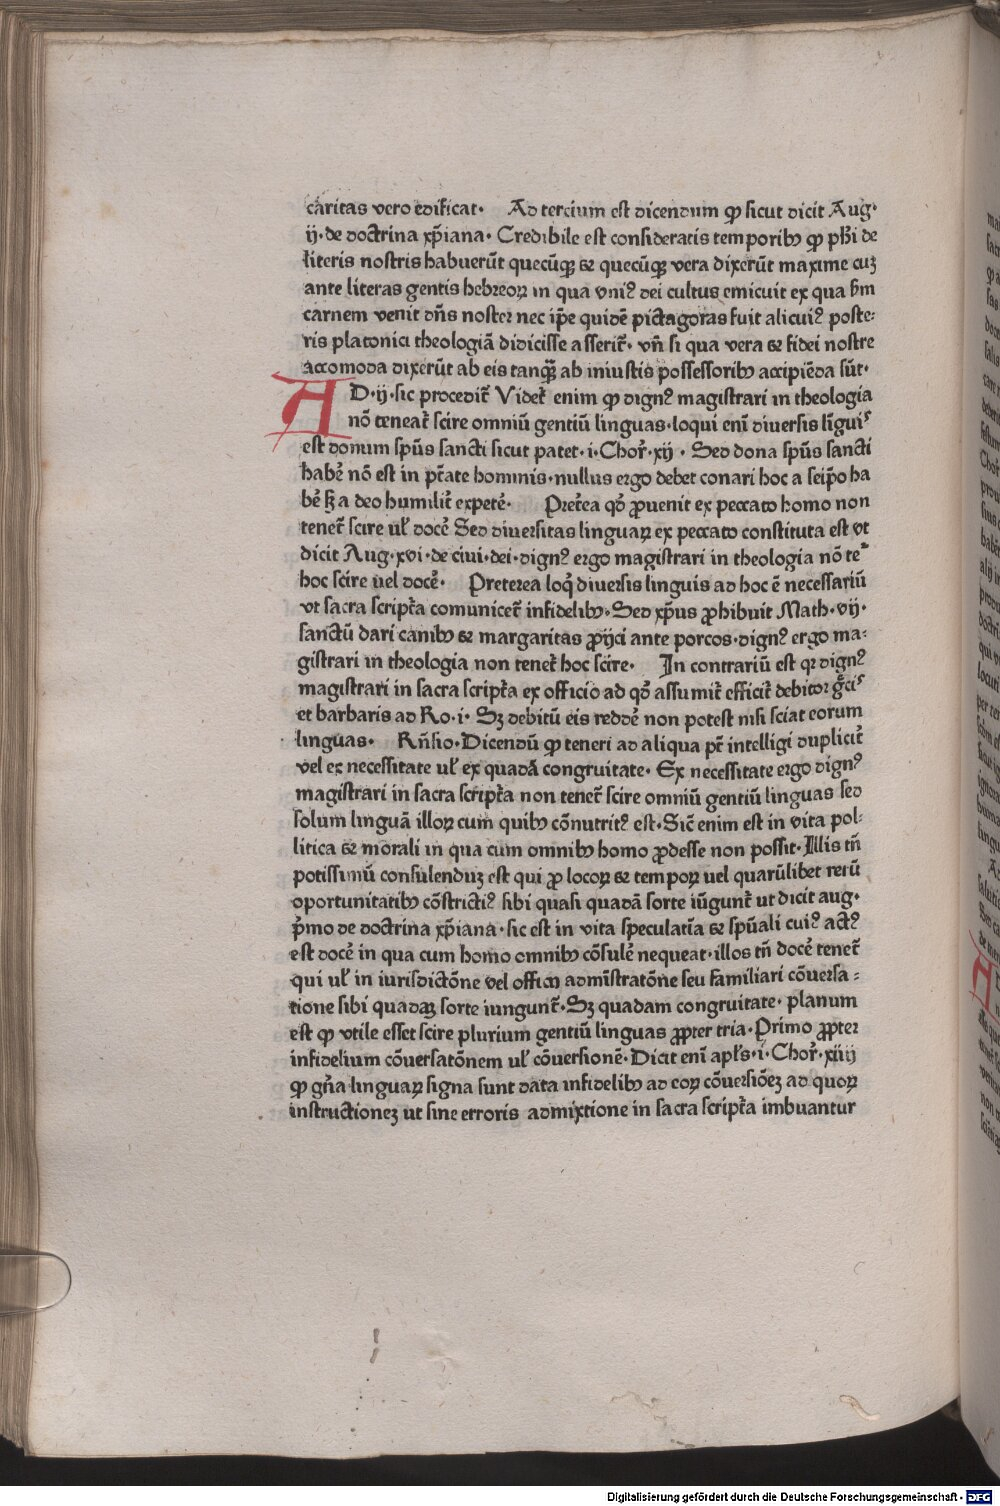 caritas vero edificat· Ad tercium est dicendum ꝙ sicut dicit Aug·
ij·de doctrina xp̄iana· Credibile est consideratis temporibꝫ ꝙ phi̅ de
literis nostris habuerūt quecūqꝫ & quecūqꝫ vera dixerūt maxime cuꝫ
ante literas gentis hebreoꝝ in qua vniꝰ dei cultus emicuit ex qua ẜm
carnem venit dn̄s noster nec ip̄e quidē pictagoras fuit alicuiꝰ poste:
ris platonici theologiā didicisse asserit᷑· vn̄ si qua vera & fidei nostre
accomoda dixerūt ab eis tanqꝫ̄ ab iniustis possessoribꝫ accipiēda sūt·
AD·ij·sic procedit᷑ Videt᷑ enim ꝙ dignꝰ magistrari in theologia
nō teneat᷑ scire omniū gentiū linguas·loqui eni̅ diuersis li̅guis
est donum sp̄us sancti sicut patet·i·Chor᷑·xij· Sed dona sp̄us sancti
habe᷑ nō est in pt̄ate hominis·nullus ergo debet conari hoc a seip̄o ha
be᷑ sꝫ a deo humilit᷑ expete᷑· Pret᷑ea qd᷑ ꝓuenit ex peccato homo non
tenet᷑ scire ul᷑ doce᷑ Sed diuersitas linguaꝝ ex peccato constituta est vt
dicit Aug·xvi·de ciui·dei·dignꝰ ergo magistrari in theologia nō te᷑
hoc scire uel doce᷑· Preterea loqͥ diuersis linguis ad hoc ē necessariū
vt sacra script᷑a comunicet᷑ infidelibꝫ·Sed xp̄us ꝓhibuit Math·vij·
sanctū dari canibꝫ & margaritas ꝓijci ante porcos·dignꝰ ergo ma:
gistrari in theologia non tenet᷑ hoc scire· In contrariū est qꝛ dignꝰ
magistrari in sacra script᷑a ex officio ad qd᷑ assumit᷑ efficit᷑ debitor g̅cis
et barbaris ad Ro·i· Sꝫ debitū eis redde᷑ non potest nisi sciat eorum
linguas· Rn̄sio·Dicendū ꝙ teneri ad aliqua pt̄ intelligi duplicit᷑
vel ex necessitate ul᷑ ex quadā congruitate· Ex necessitate ergo dignꝰ
magistrari in sacra script᷑a non tenet᷑ scire omniū gentiū linguas sed
solum linguā illoꝝ cum quibꝫ cōnutritꝰ est·Sic̄ enim est in vita pol:
litica & morali in qua cum omnibꝫ homo ꝓdesse non possit·Illis tn̄
potissimū consulenduꝫ est qui ꝓ locoꝝ & tempoꝝ uel quarūlibet rerū
oportunitatibꝫ cōstrictiꝰ sibi quasi quadā sorte iūgunt᷑ ut dicit aug·
p̄mo de doctrina xp̄iana·sic est in vita speculatīa & sp̄uali cuiꝰ actꝰ
est doce᷑ in qua cum homo omnibꝫ cōsule᷑ nequeat·illos tn̄ doce᷑ tenet᷑
qui ul᷑ in iurisdictōne vel officij admi̅stratōne seu familiari cōuersa:
tione sibi quadaꝫ sorte iungunt᷑·Sꝫ quadam congruitate· planum
est ꝙ vtile esset scire plurium gentiū linguas ꝓpter tria·Primo ꝓpter
infidelium cōuersatōnem ul᷑ cōuersionē·Dicit eni̅ apl᷑s·i·Chor᷑·xiiij
ꝙ gn̄a linguaꝝ signa sunt data infidelibꝫ ad eoꝝ cōuersiōeꝫ ad quoꝝ
instructioneꝫ ut sine erroris admixtione in sacra script᷑a imbuantur
Digitalisierung gefördert durch die Deutsche Forschungsgemeinschaft - DFG